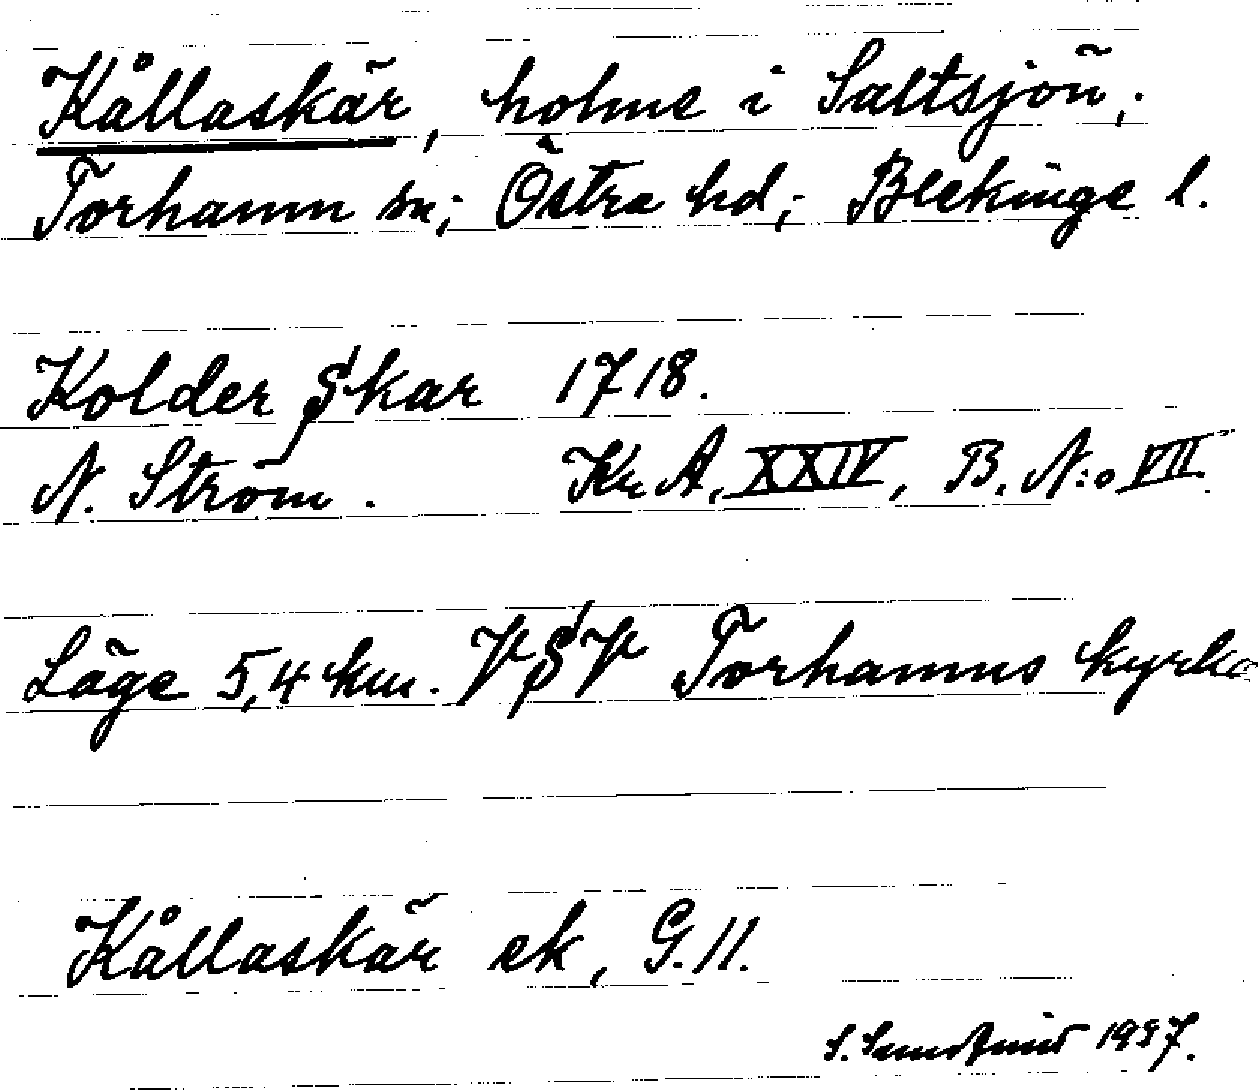 Kållaskär, holme i Saltsjön;
Torhamn sn; Östra hd; Blekinge l.
Kolder Skär 1718.
N. Ström. Kr. A. XXIV, B. N:o VII.
Läge 5,4 km. VSV Torhamns kyrka
Kållaskär ek, G. 11.
S. 1937.